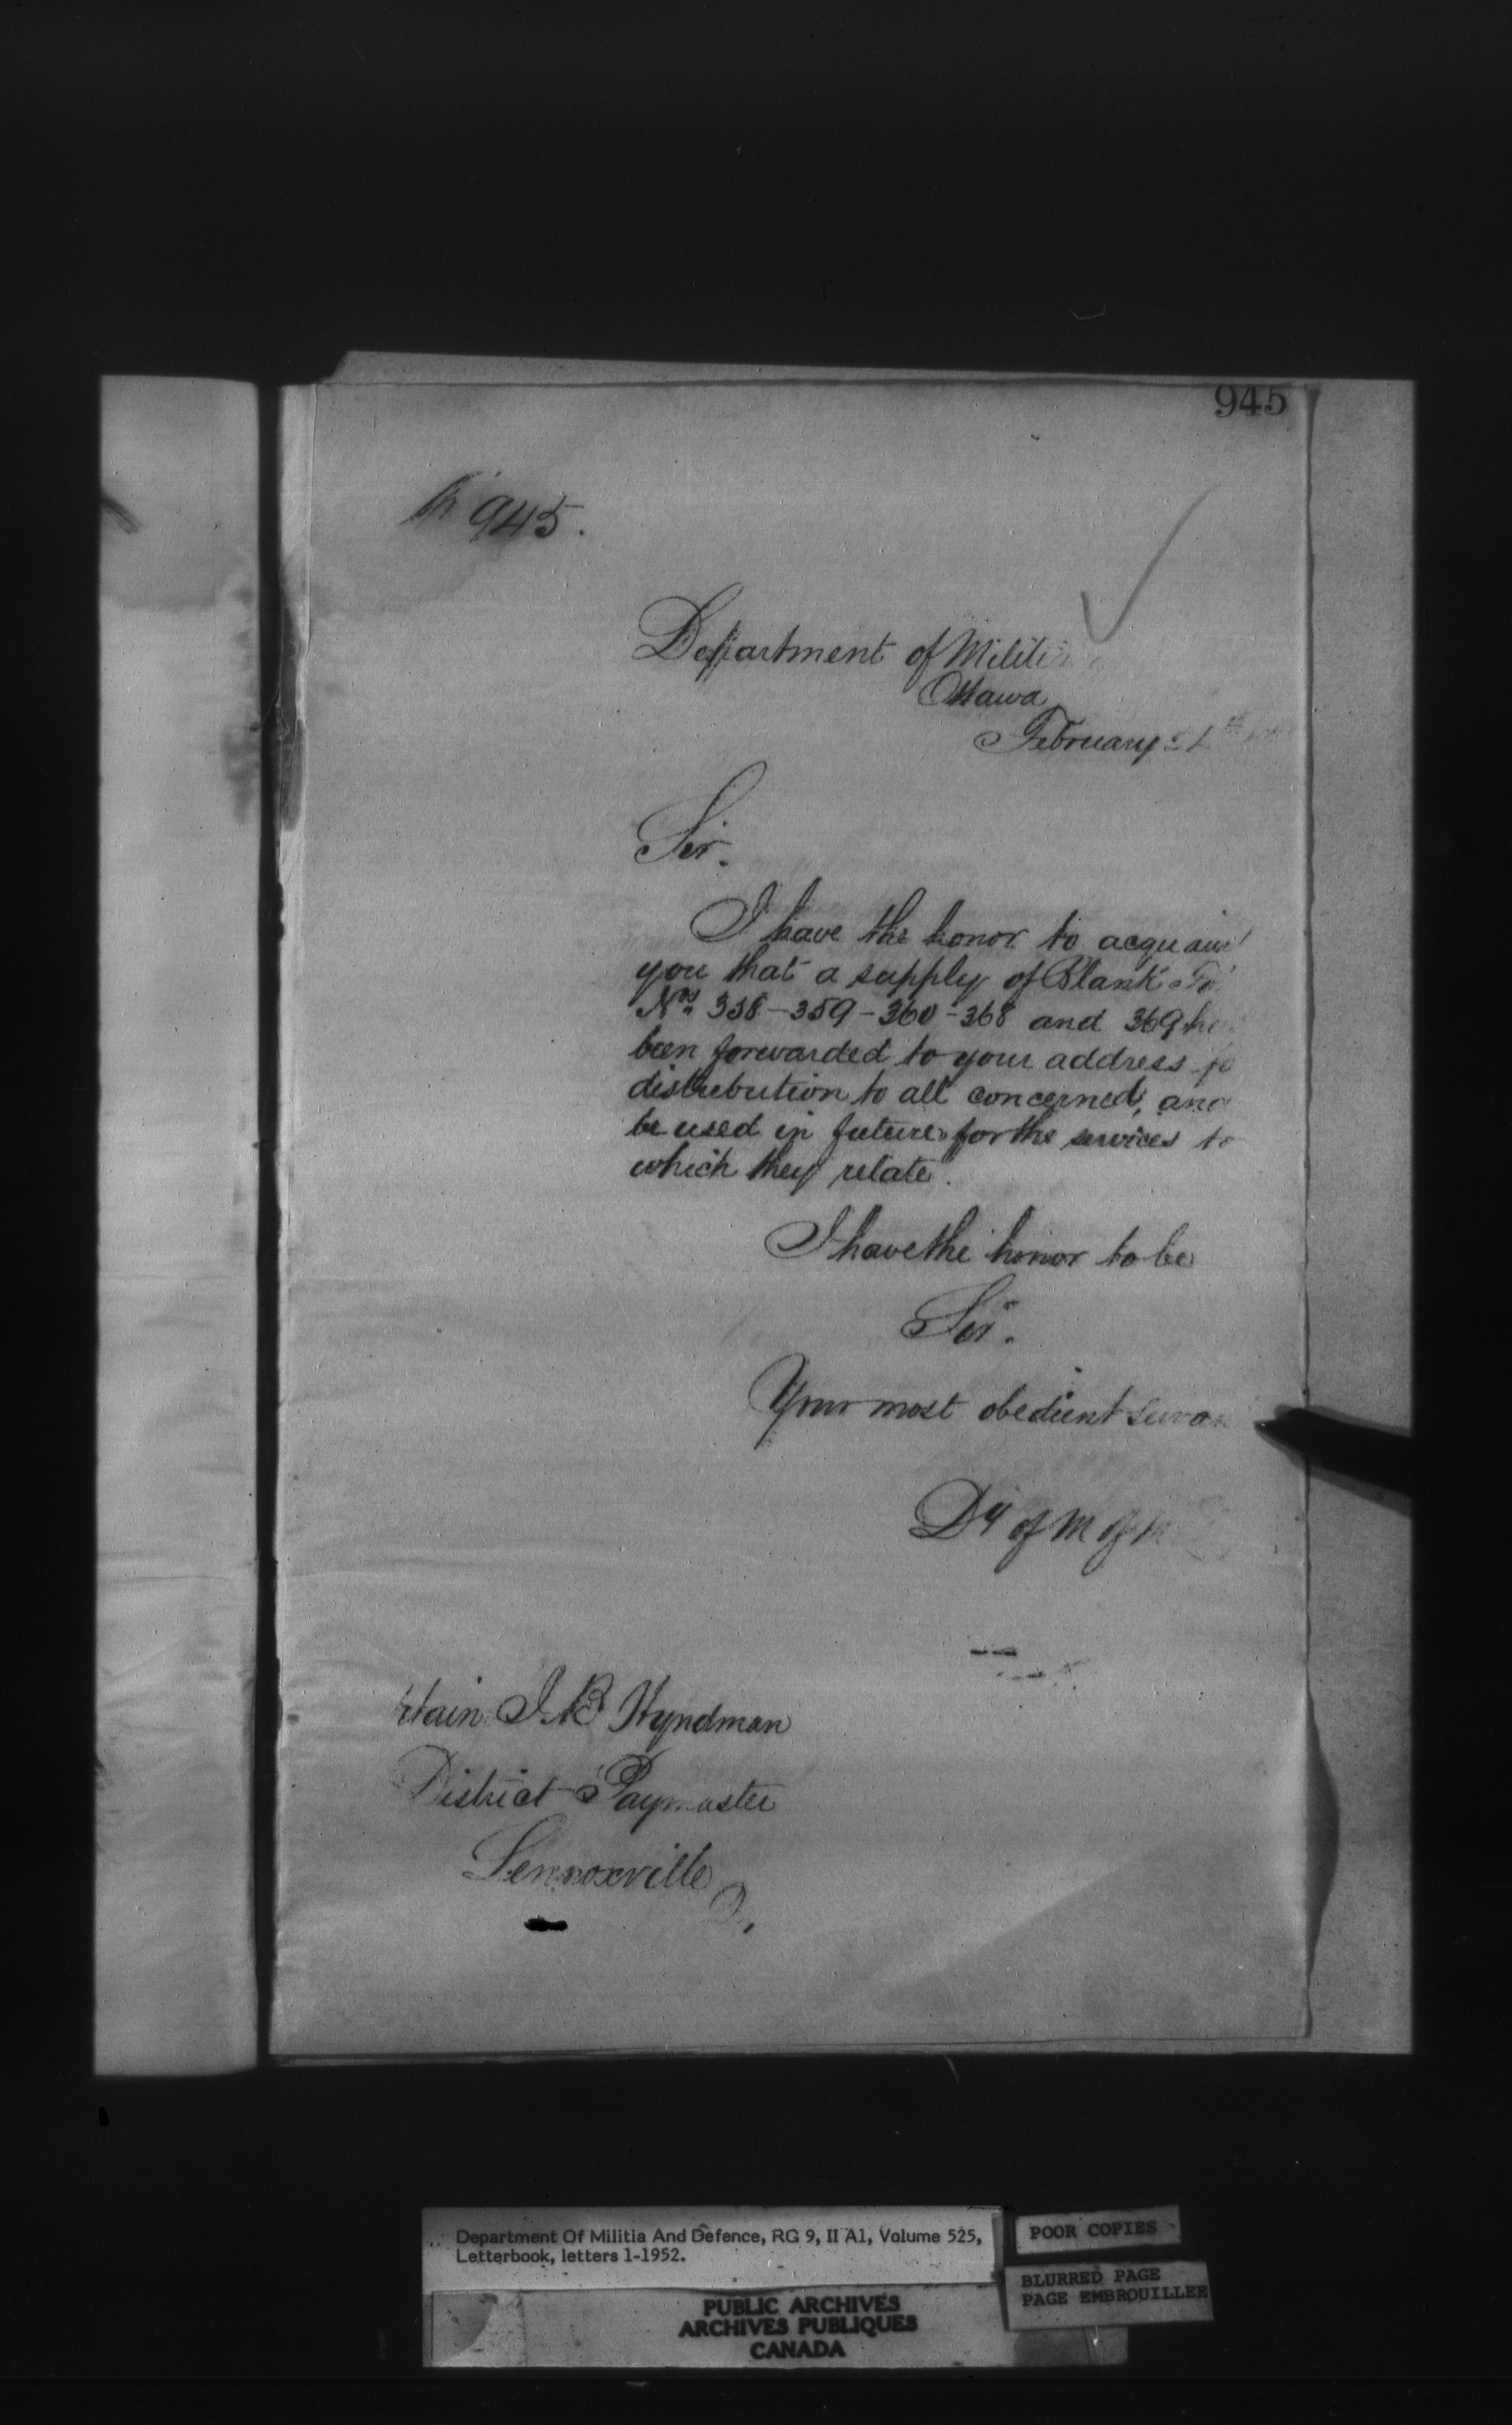 945
No 945.
Department of Militia
Ottawa
February
Sir.
I have the honor to acquaint
you that a supply of Blank
Nos 358-359-360-368 and 369
been forwarded to your address
distribution to all concerned, and
be used in future for the services to
which they relate.
I have the honor to be
Sir.
Your most obedient servan
Dy of M of M
tain J.B Hyndman
District Paymaster
Lennoxville
Q.
Department Of Militia And Defence, RG 9, II A1, Volume 525,
Letterbook, letters 1-1952.
POOR COPIES
BLURRED PAGE
PAGE EMBROUILLEE
PUBLIC ARCHIVES
ARCHIVES PUBLIQUES
CANADA